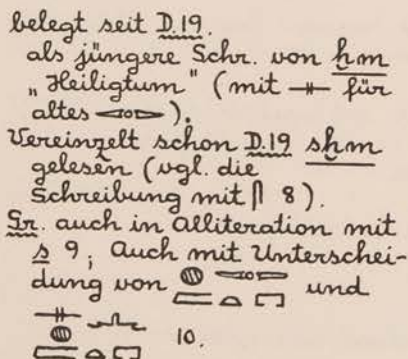 belegt seit D.19.
als jüngere Schr. von ḫm
„Heiligtum" (mit 𓊃 für
altes ).
Vereinzelt schon D.19 sḫm
gelesen (vgl. die
Schreibung mit 𓋴 8).
Gr. auch in Alliteration mit
s 9; Auch mit Unterschei-
dung von 𓐍 𓏏 𓉐 und
𓊃 𓐍 𓏏 𓉐 10.